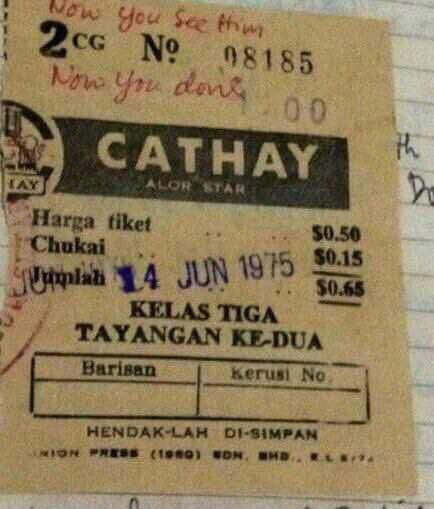 Now you see Him
2CG Nº 08185
Now you don't
.00
CATHAY
ALOR STAR
HAY
Harga tiket .. .. $0.50
Chukai .. .. $0.15
Jumlah .. .. $0.65
14 JUN 1975
KELAS TIGA
TAYANGAN KE-DUA
Barisan Kerusi No.
HENDAK-LAH DI-SIMPAN
UNION PRESS (1960) SDN. BHD.,